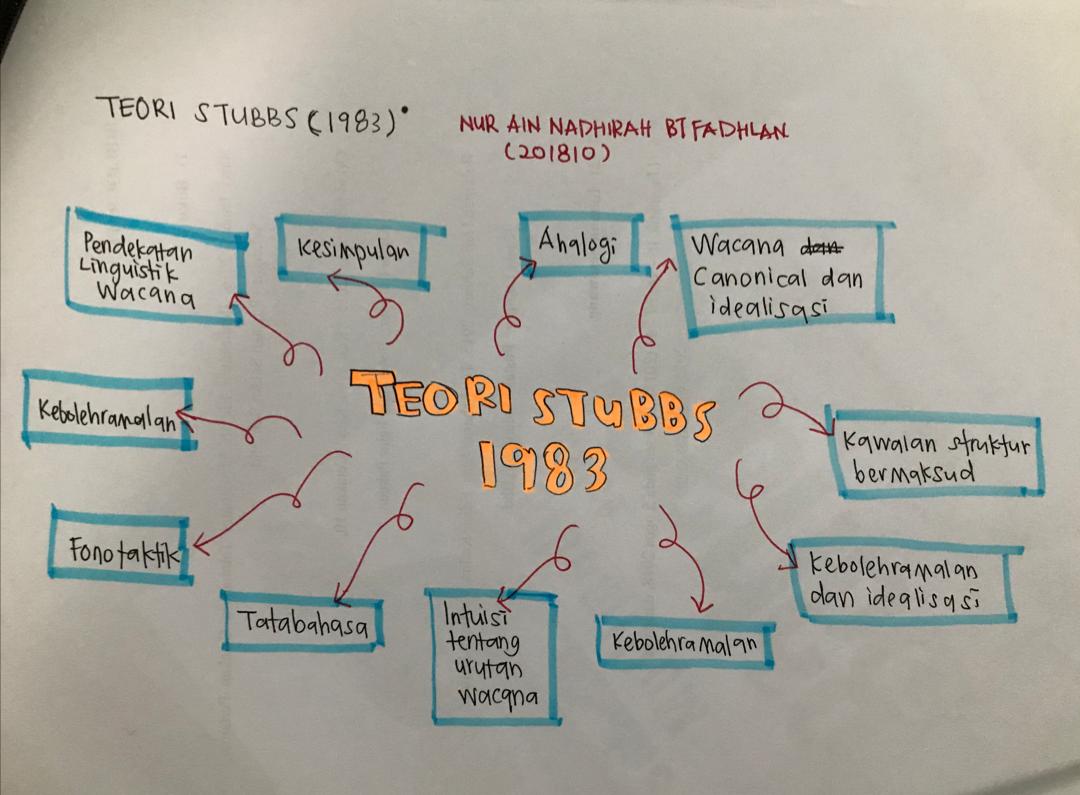 TEORI STUBBS (1983)
NUR AIN NADHIRAH BT FADHLAN
(201810)
Pendekatan
Linguistik
Wacana
Kesimpulan
Analogi
Wacana dan
Canonical dan
idealisasi
Kebolehramalan
TEORI STUBBS
1983
Kawalan struktur
bermaksud
Fonotaktik
Kebolehramalan
dan idealisasi
Tatabahasa
Intuisi
tentang
urutan
wacana
Kebolehramalan